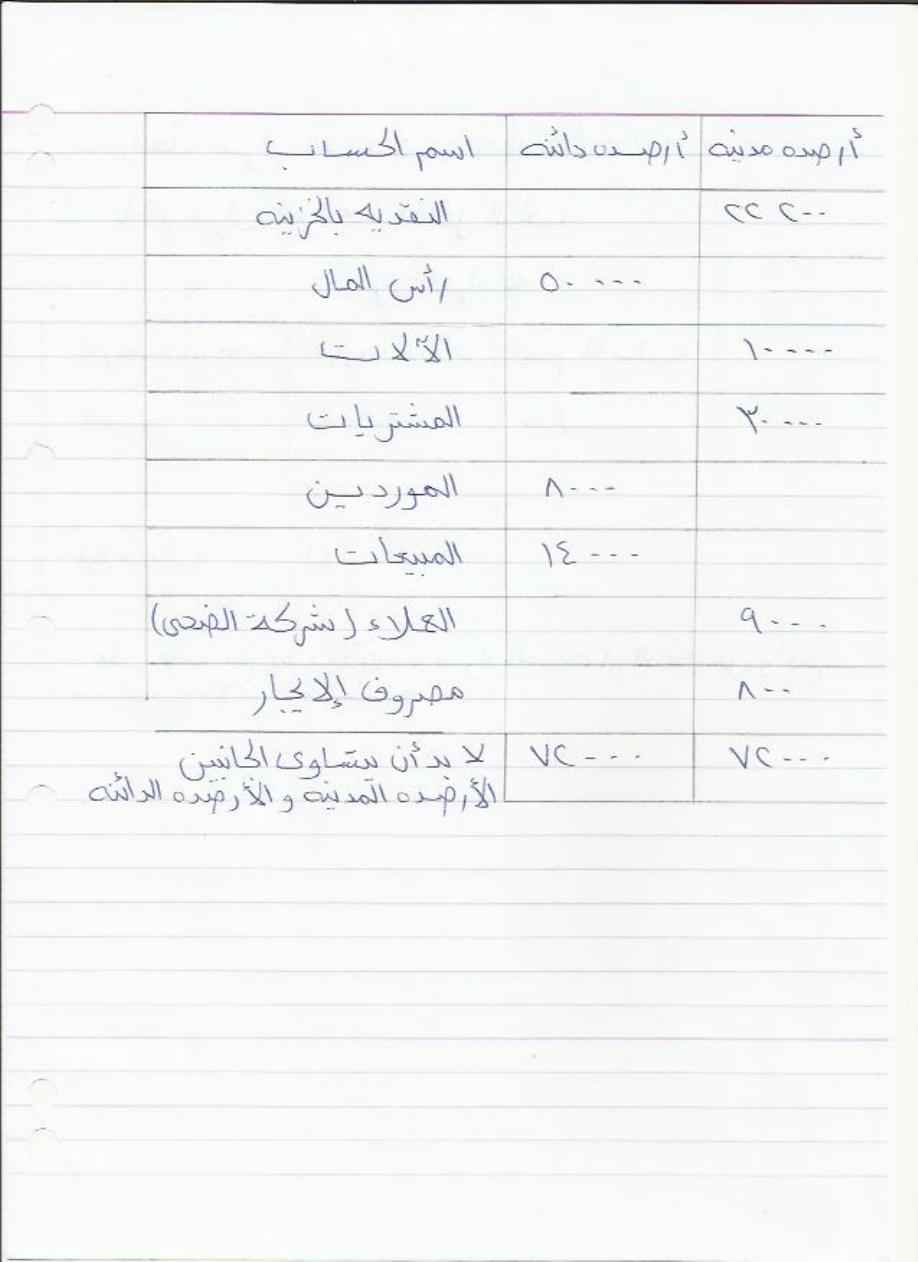 أرصده مدينه أرصده دائنه اسم الحساب
٢٢٢٠٠ النقديه بالخزينه
٥٠٠٠٠ رأس المال
١٠٠٠٠ الآلات
٣٠٠٠٠ المشتريات
٨٠٠٠ الموردين
١٤٠٠٠ المبيعات
٩٠٠٠ العملاء (شركة الضحى)
٨٠٠ مصروف الإيجار
٧٢٠٠٠ ٧٢٠٠٠ لا بد أن يتساوى الجانبين
الأرصده المدينه و الأرصده الدائنه